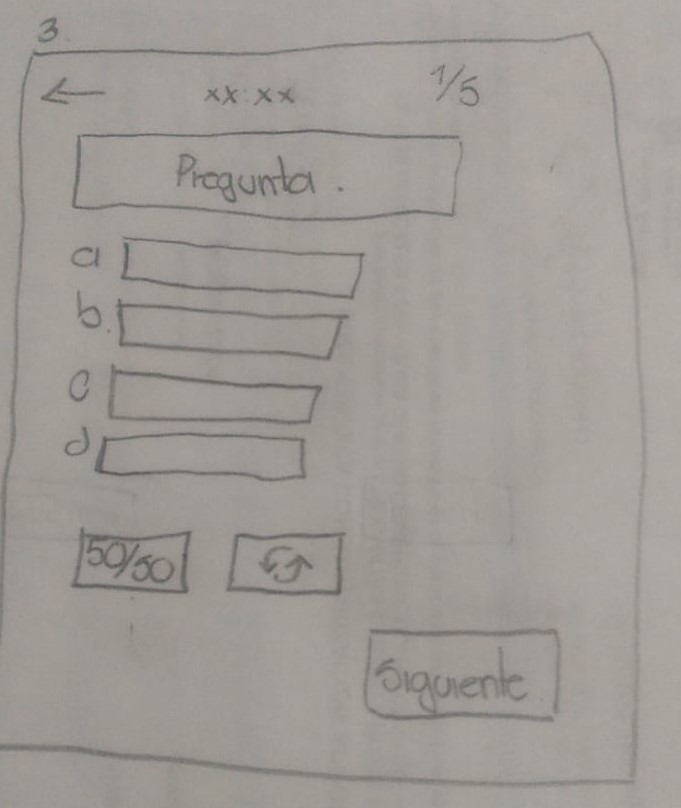 3.
← xx:xx 1/5
Pregunta.
a
b.
c
d
50/50
Siguiente